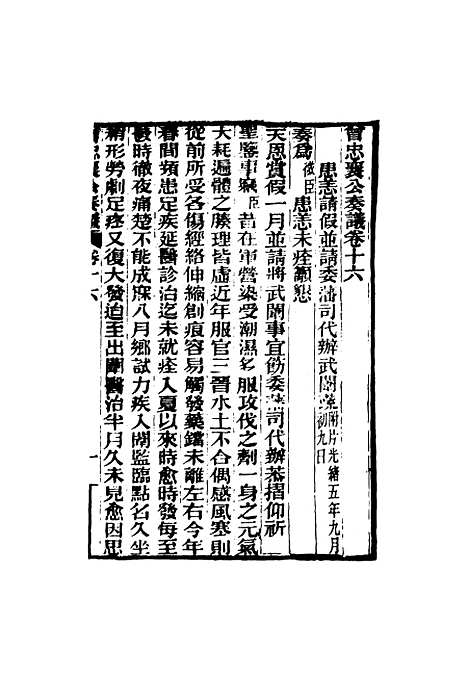 曾忠襄公奏議卷十六
患恙請假並請委藩司代辦武闈疏附片光緒五年九月初九日
奏爲微臣患恙未痊籲懇
天恩賞假一月並請將武闈事宜飭委藩司代辦恭摺仰祈
聖鑒事竊臣昔在軍營染受潮濕多服攻伐之劑一身之元氣
大耗遍體之腠理皆虛近年服官三晉水土不合偶感風寒則
從前所受各傷經絡伸縮創痕容易觸發藥鐺未離左右今年
春間頻患足疾延醫診治迄未就痊入夏以來時愈時發每至
發時徹夜痛楚不能成寐八月鄉試力疾入闈監臨點名久坐
稍形勞劇足疼又復大發迨至出闈醫治半月久未見愈因思
曾忠襄公奏議 卷十六
一